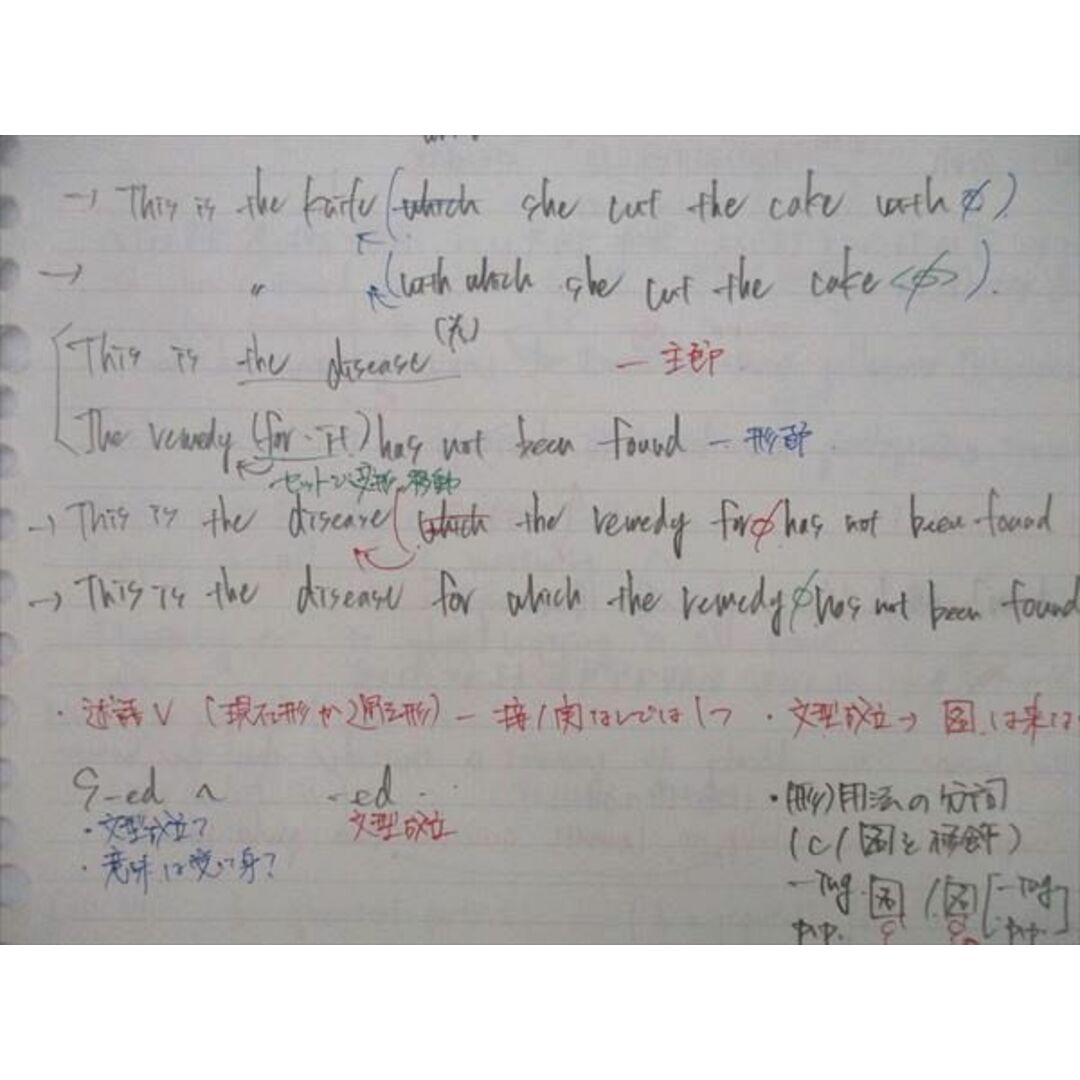 → This is the knife (which she cut the cake with φ).
→ 〃 (with which she cut the cake <φ>).
This is the disease (先) — 主節
The remedy (for it) has not been found — 形節
セットで変形、移動
→ This is the disease (which the remedy for φ has not been found
→ This is the disease for which the remedy φ has not been found
・述語V (現在形か過去形) — 接/関なしでは1つ ・文型成立→
S -ed ~ -ed ・・
・文型成立? 文型成立
・意味は受け身?
・(形)用法の分詞
(C/名を修飾)
-ing 名 / 名 [-ing]
p.p. p.p.